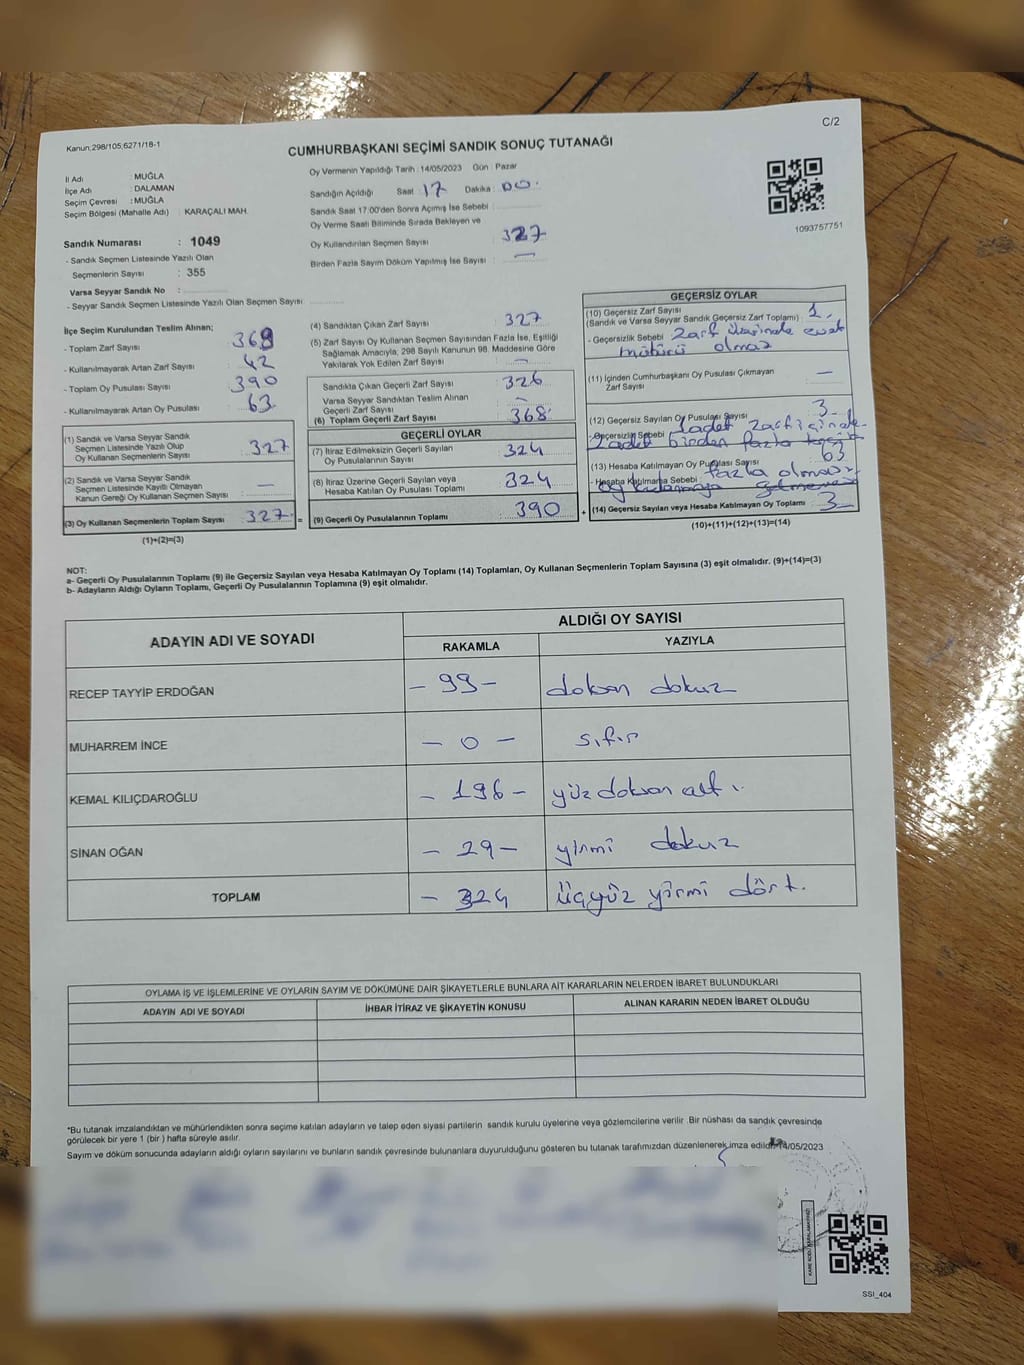 C/2
Kanun;298/105;6271/18-1
CUMHURBAŞKANI SEÇİMİ SANDIK SONUÇ TUTANAĞI
İl Adı : MUĞLA
İlçe Adı : DALAMAN
Seçim Çevresi : MUĞLA
Seçim Bölgesi (Mahalle Adı) : KARAÇALI MAH.
Sandık Numarası : 1049
- Sandık Seçmen Listesinde Yazılı Olan
Seçmenlerin Sayısı : 355
Varsa Seyyar Sandık No :
- Seyyar Sandık Seçmen Listesinde Yazılı Olan Seçmen Sayısı
Oy Vermenin Yapıldığı Tarih : 14/05/2023 Gün : Pazar
Sandığın Açıldığı Saat : 17 Dakika : 00.
Sandık Saat 17:00'den Sonra Açımış İse Sebebi :
Oy Verme Saati Bitiminde Sırada Bekleyen ve
Oy Kullandırılan Seçmen Sayısı : 327
Birden Fazla Sayım Döküm Yapılmış İse Sayısı : —
1093757751
İlçe Seçim Kurulundan Teslim Alınan;
- Toplam Zarf Sayısı : 369
- Kullanılmayarak Artan Zarf Sayısı : 42
- Toplam Oy Pusulası Sayısı : 390
- Kullanılmayarak Artan Oy Pusulası : 63
(1) Sandık ve Varsa Seyyar Sandık
Seçmen Listesinde Yazılı Olup
Oy Kullanan Seçmenlerin Sayısı : 327
(2) Sandık ve Varsa Seyyar Sandık
Seçmen Listesinde Kayıtlı Olmayan
Kanun Gereği Oy Kullanan Seçmen Sayısı : —
(3) Oy Kullanan Seçmenlerin Toplam Sayısı : 327 =
(1)+(2)=(3)
(4) Sandıktan Çıkan Zarf Sayısı : 327
(5) Zarf Sayısı Oy Kullanan Seçmen Sayısından Fazla İse, Eşitliği
Sağlamak Amacıyla, 298 Sayılı Kanunun 98. Maddesine Göre
Yakılarak Yok Edilen Zarf Sayısı : —
Sandıkta Çıkan Geçerli Zarf Sayısı : 326
Varsa Seyyar Sandıktan Teslim Alınan
Geçerli Zarf Sayısı : —
(6) Toplam Geçerli Zarf Sayısı : 368
GEÇERLİ OYLAR
(7) İtiraz Edilmeksizin Geçerli Sayılan
Oy Pusulalarının Sayısı : 324
(8) İtiraz Üzerine Geçerli Sayılan veya
Hesaba Katılan Oy Pusulası Toplamı : 324
(9) Geçerli Oy Pusulalarının Toplamı : 390 +
GEÇERSİZ OYLAR
(10) Geçersiz Zarf Sayısı
(Sandık ve Varsa Seyyar Sandık Geçersiz Zarf Toplamı) : 1
- Geçersizlik Sebebi : Zarf üzerinde evet
mührü olmaz
(11) İçinden Cumhurbaşkanı Oy Pusulası Çıkmayan
Zarf Sayısı : —
(12) Geçersiz Sayılan Oy Pusulası Sayısı : 3
- Geçersizlik Sebebi 1 adet zarf içinde
2 adet birden fazla
(13) Hesaba Katılmayan Oy Pusulası Sayısı : 63
- Hesaba Katılmama Sebebi fazla olması
(14) Geçersiz Sayılan veya Hesaba Katılmayan Oy Toplamı : 3
(10)+(11)+(12)+(13)=(14)
NOT:
a- Geçerli Oy Pusulalarının Toplamı (9) ile Geçersiz Sayılan veya Hesaba Katılmayan Oy Toplamı (14) Toplamları, Oy Kullanan Seçmenlerin Toplam Sayısına (3) eşit olmalıdır. (9)+(14)=(3)
b- Adayların Aldığı Oyların Toplamı, Geçerli Oy Pusulalarının Toplamına (9) eşit olmalıdır.
ADAYIN ADI VE SOYADI
ALDIĞI OY SAYISI
RAKAMLA YAZIYLA
RECEP TAYYİP ERDOĞAN - 99 - doksan dokuz
MUHARREM İNCE - 0 - sıfır
KEMAL KILIÇDAROĞLU - 196 - yüz doksan altı
SİNAN OĞAN - 29 - yirmi dokuz
TOPLAM - 324 üçyüz yirmi dört.
OYLAMA İŞ VE İŞLEMLERİNE VE OYLARIN SAYIM VE DÖKÜMÜNE DAİR ŞİKAYETLERLE BUNLARA AİT KARARLARIN NELERDEN İBARET BULUNDUKLARI
ADAYIN ADI VE SOYADI İHBAR İTİRAZ VE ŞİKAYETİN KONUSU ALINAN KARARIN NEDEN İBARET OLDUĞU
*Bu tutanak imzalandıktan ve mühürlendikten sonra seçime katılan adayların ve talep eden siyasi partilerin sandık kurulu üyelerine veya gözlemcilerine verilir. Bir nüshası da sandık çevresinde
görülecek bir yere 1 (bir) hafta süreyle asılır.
Sayım ve döküm sonucunda adayların aldığı oyların sayılarını ve bunların sandık çevresinde bulunanlara duyurulduğunu gösteren bu tutanak tarafımızdan düzenlenerek imza edildi. 14/05/2023
SSI_404